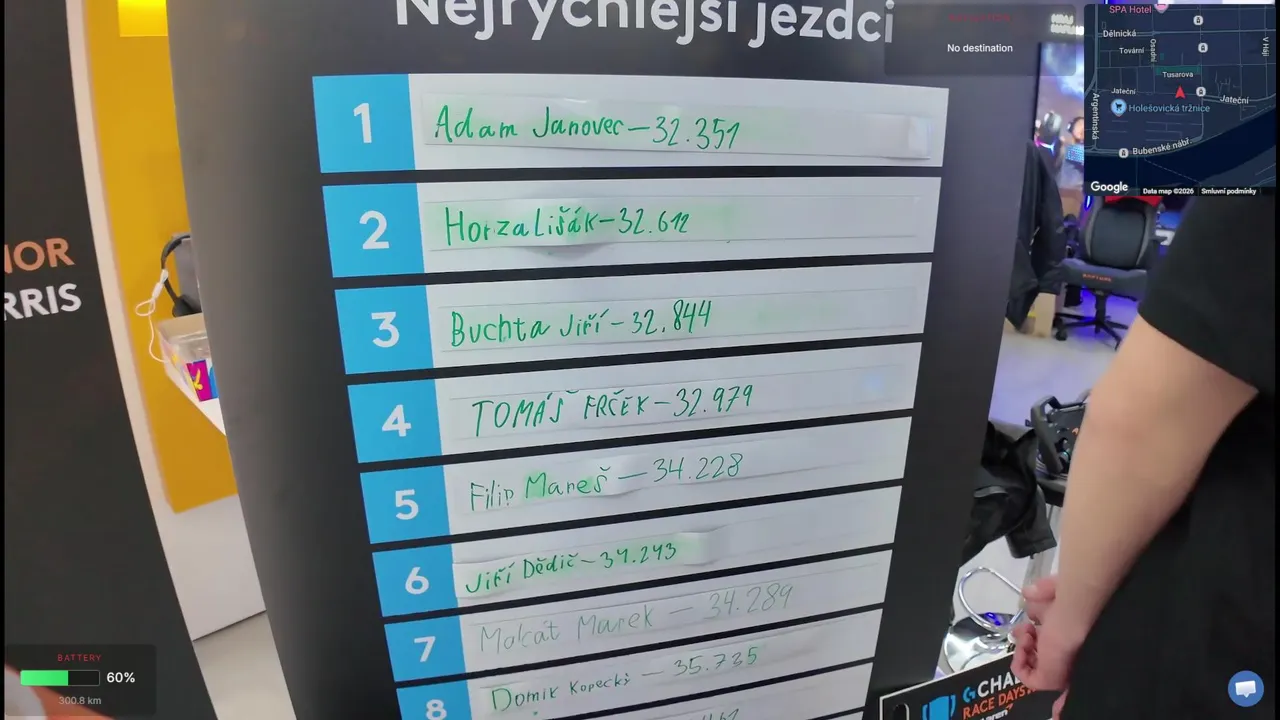 Nejrychlejší jezdci
1 Adam Janovec – 32.351
2 Horza Lišák – 32.612
3 Buchta Jiří – 32.844
4 TOMÁŠ FRČEK – 32.979
5 Filip Mareš – 34.228
6 Jiří Dědič – 34.243
7 Mokát Marek – 34.289
8 Domik Kopecký – 35.735
NOR
RRIS
No destination
SPA Hotel
Dělnická
Tovární
Osadní
V Háji
Tusarova
Jateční
Jateční
Argentinská
Holešovická tržnice
Bubenské nábř.
Google
Data map ©2026
Smluvní podmínky
BATTERY
60%
300.8 km
G CHAL
RACE DAYS